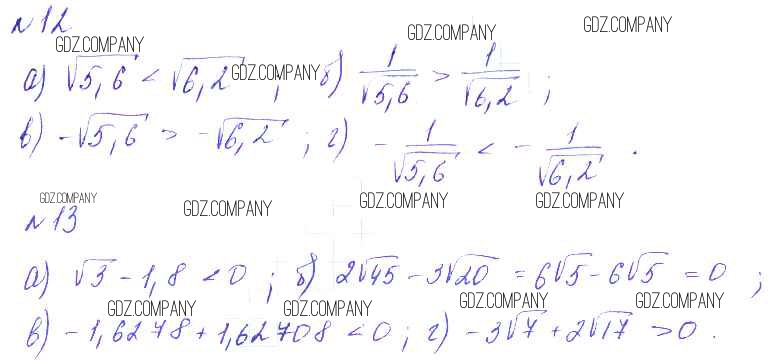 №12
GDZ.COMPANY GDZ.COMPANY GDZ.COMPANY
а) √5,6 < √6,2 ; б) 1/√5,6 > 1/√6,2 ;
GDZ.COMPANY
в) -√5,6 > -√6,2 ; г) - 1/√5,6 < - 1/√6,2 .
GDZ.COMPANY GDZ.COMPANY GDZ.COMPANY GDZ.COMPANY
№13
а) √3 - 1,8 < 0 ; б) 2√45 - 3√20 = 6√5 - 6√5 = 0 ;
GDZ.COMPANY GDZ.COMPANY GDZ.COMPANY GDZ.COMPANY
в) -1,6278 + 1,62708 < 0 ; г) -3√7 + 2√17 > 0 .